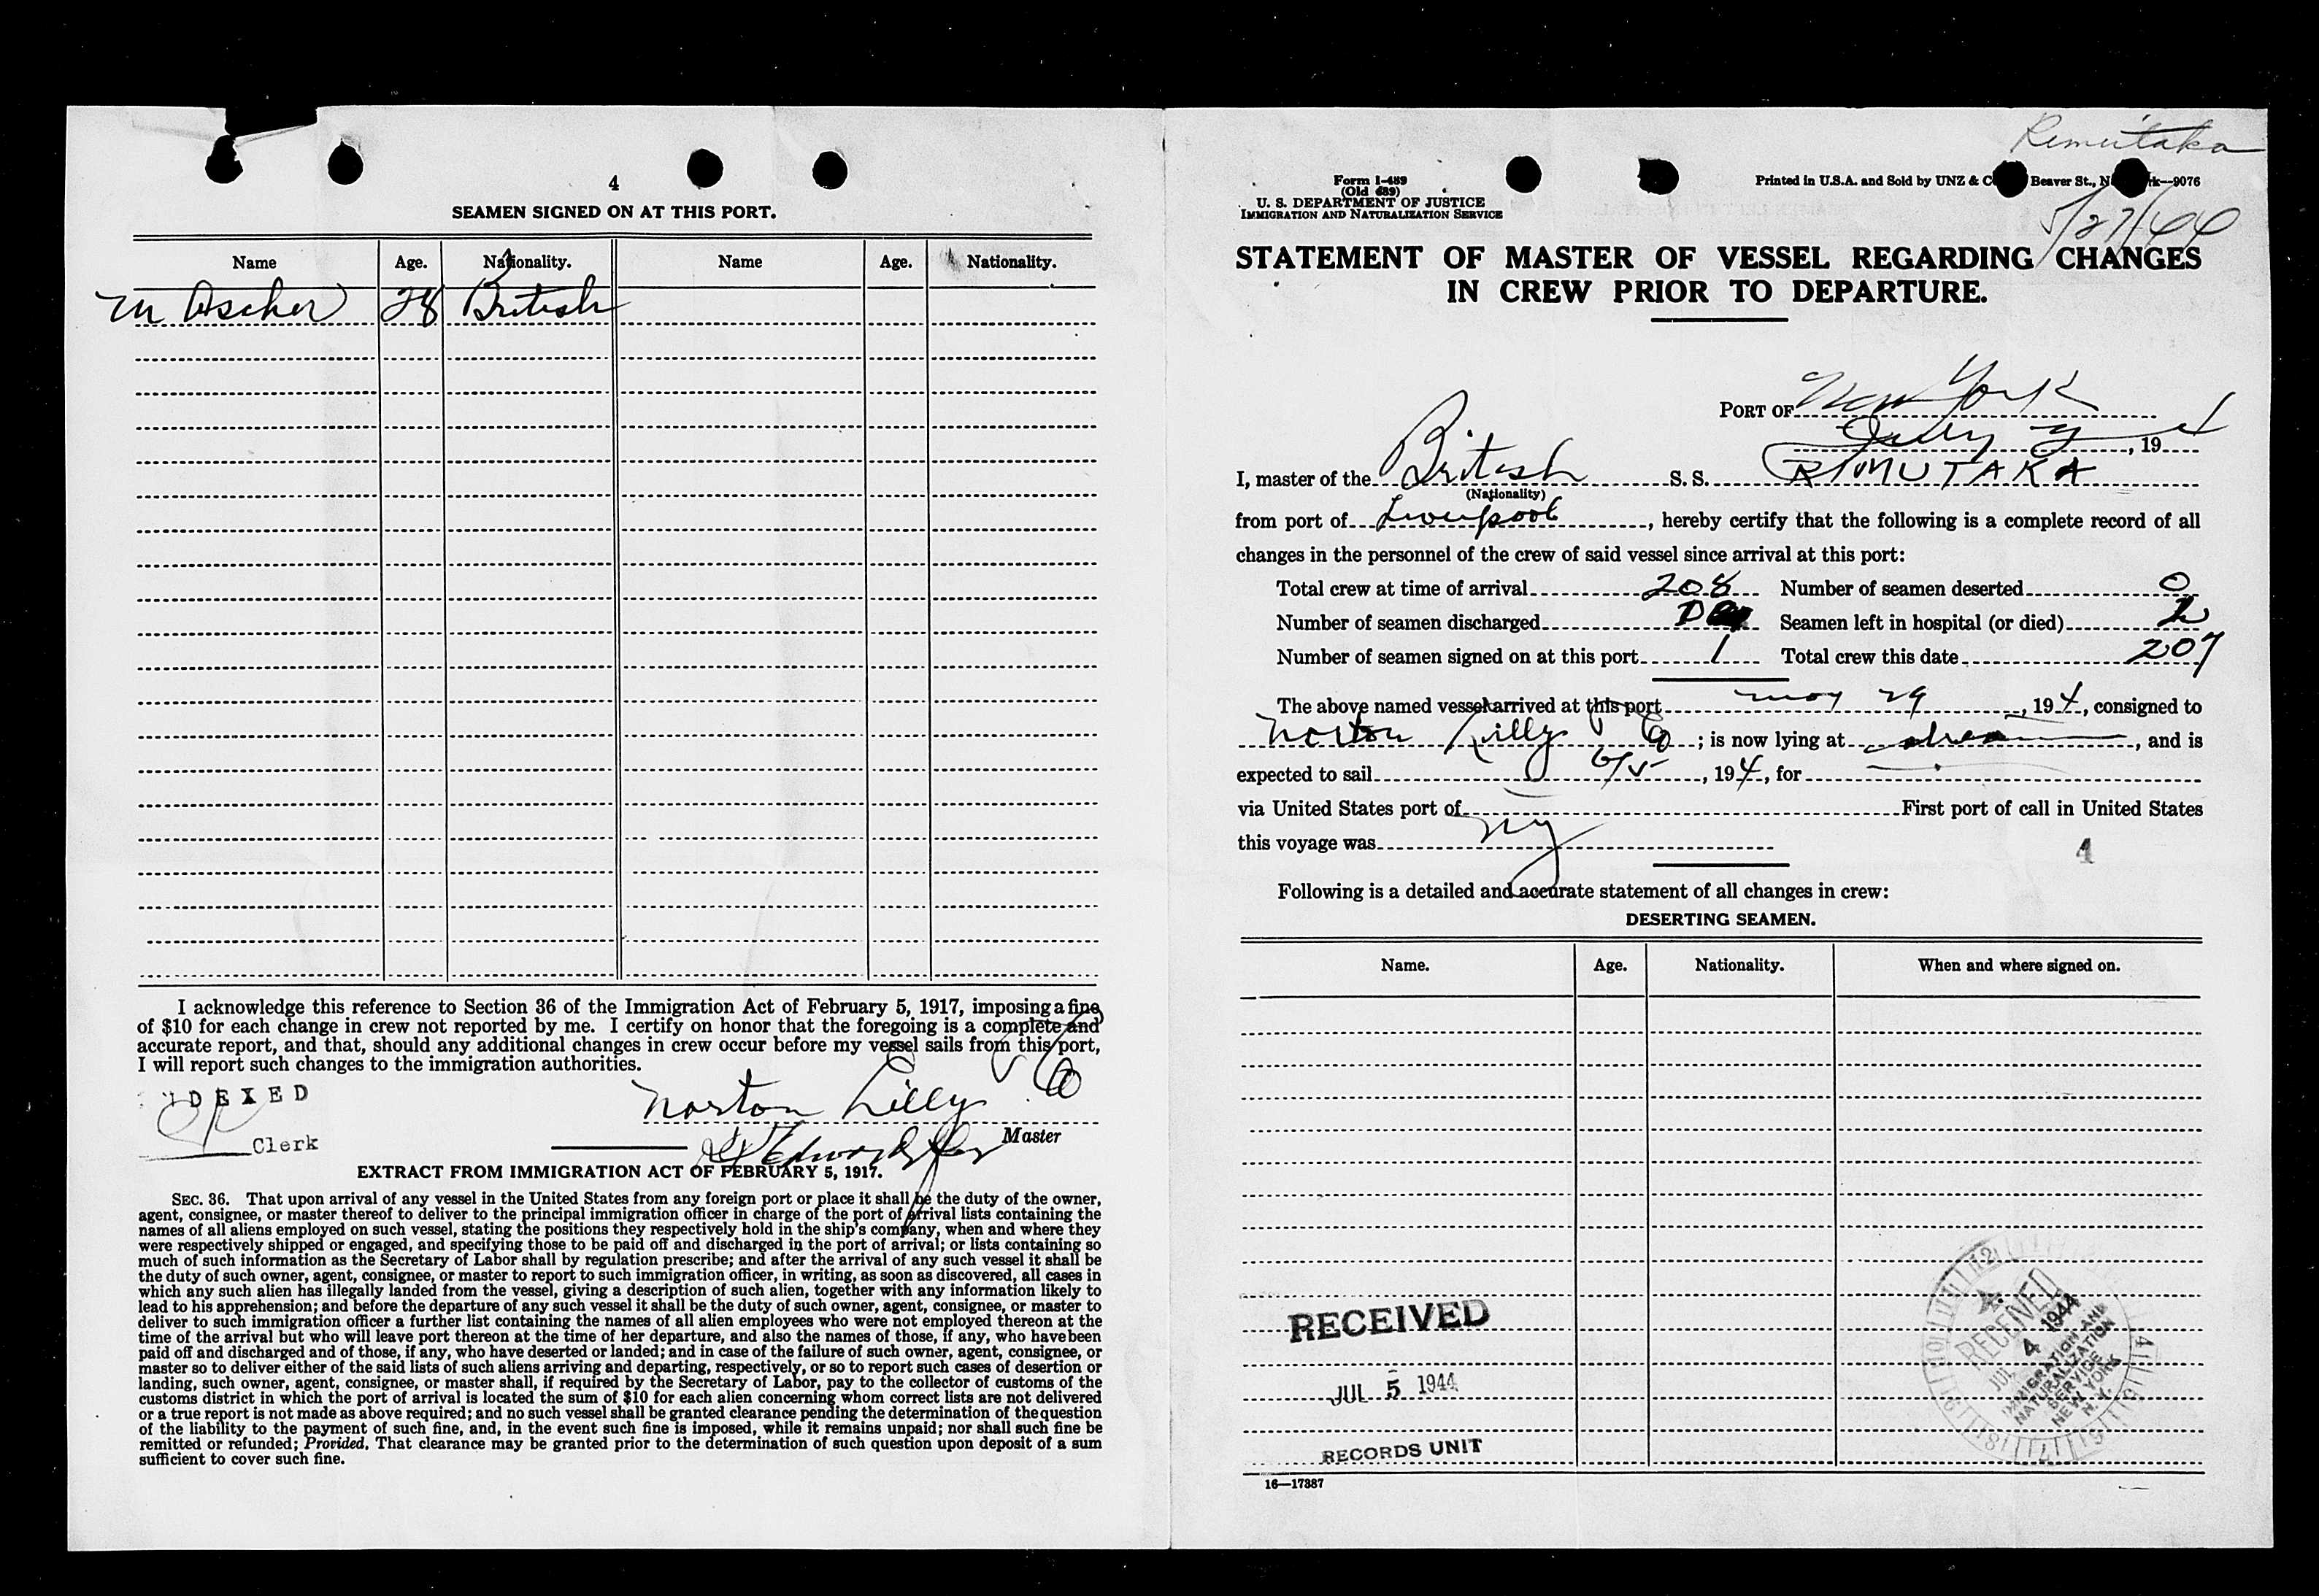 4
SEAMEN SIGNED ON AT THIS PORT.
Name Age. Nationality. Name Age. Nationality.
M Ascher 28 British
I acknowledge this reference to Section 36 of the Immigration Act of February 5, 1917, imposing a fine
of $10 for each change in crew not reported by me. I certify on honor that the foregoing is a complete and
accurate report, and that, should any additional changes in crew occur before my vessel sails from this port,
I will report such changes to the immigration authorities.
INDEXED
Clerk
Norton Lilly & Co
Master
EXTRACT FROM IMMIGRATION ACT OF FEBRUARY 5, 1917.
SEC. 36. That upon arrival of any vessel in the United States from any foreign port or place it shall be the duty of the owner,
agent, consignee, or master thereof to deliver to the principal immigration officer in charge of the port of arrival lists containing the
names of all aliens employed on such vessel, stating the positions they respectively hold in the ship's company, when and where they
were respectively shipped or engaged, and specifying those to be paid off and discharged in the port of arrival; or lists containing so
much of such information as the Secretary of Labor shall by regulation prescribe; and after the arrival of any such vessel it shall be
the duty of such owner, agent, consignee, or master to report to such immigration officer, in writing, as soon as discovered, all cases in
which any such alien has illegally landed from the vessel, giving a description of such alien, together with any information likely to
lead to his apprehension; and before the departure of any such vessel it shall be the duty of such owner, agent, consignee, or master to
deliver to such immigration officer a further list containing the names of all alien employees who were not employed thereon at the
time of the arrival but who will leave port thereon at the time of her departure, and also the names of those, if any, who have been
paid off and discharged and of those, if any, who have deserted or landed; and in case of the failure of such owner, agent, consignee, or
master so to deliver either of the said lists of such aliens arriving and departing, respectively, or so to report such cases of desertion or
landing, such owner, agent, consignee, or master shall, if required by the Secretary of Labor, pay to the collector of customs of the
customs district in which the port of arrival is located the sum of $10 for each alien concerning whom correct lists are not delivered
or a true report is not made as above required; and no such vessel shall be granted clearance pending the determination of the question
of the liability to the payment of such fine, and, in the event such fine is imposed, while it remains unpaid; nor shall such fine be
remitted or refunded; Provided, That clearance may be granted prior to the determination of such question upon deposit of a sum
sufficient to cover such fine.
Rimutaka
5/27/44
Form I-489
(Old 689)
U. S. DEPARTMENT OF JUSTICE
IMMIGRATION AND NATURALIZATION SERVICE
Printed in U.S.A. and Sold by UNZ & C Beaver St., N rk—9076
STATEMENT OF MASTER OF VESSEL REGARDING CHANGES
IN CREW PRIOR TO DEPARTURE.
PORT OF New York
July , 19
I, master of the British S. S. RIMUTAKA
(Nationality)
from port of Liverpool, hereby certify that the following is a complete record of all
changes in the personnel of the crew of said vessel since arrival at this port:
Total crew at time of arrival 208 Number of seamen deserted 0
Number of seamen discharged Seamen left in hospital (or died) 2
Number of seamen signed on at this port 1 Total crew this date 207
The above named vessel arrived at this port may 29, 194, consigned to
Norton Lilly & Co; is now lying at stream, and is
expected to sail 6/5, 194, for
via United States port of First port of call in United States
this voyage was NY
4
Following is a detailed and accurate statement of all changes in crew:
DESERTING SEAMEN.
Name. Age. Nationality. When and where signed on.
RECEIVED
JUL 5 1944
RECORDS UNIT
RECEIVED
JUL 4 1944
IMMIGRATION AND
NATURALIZATION
SERVICE
NEW YORK
N.Y.
16—17387